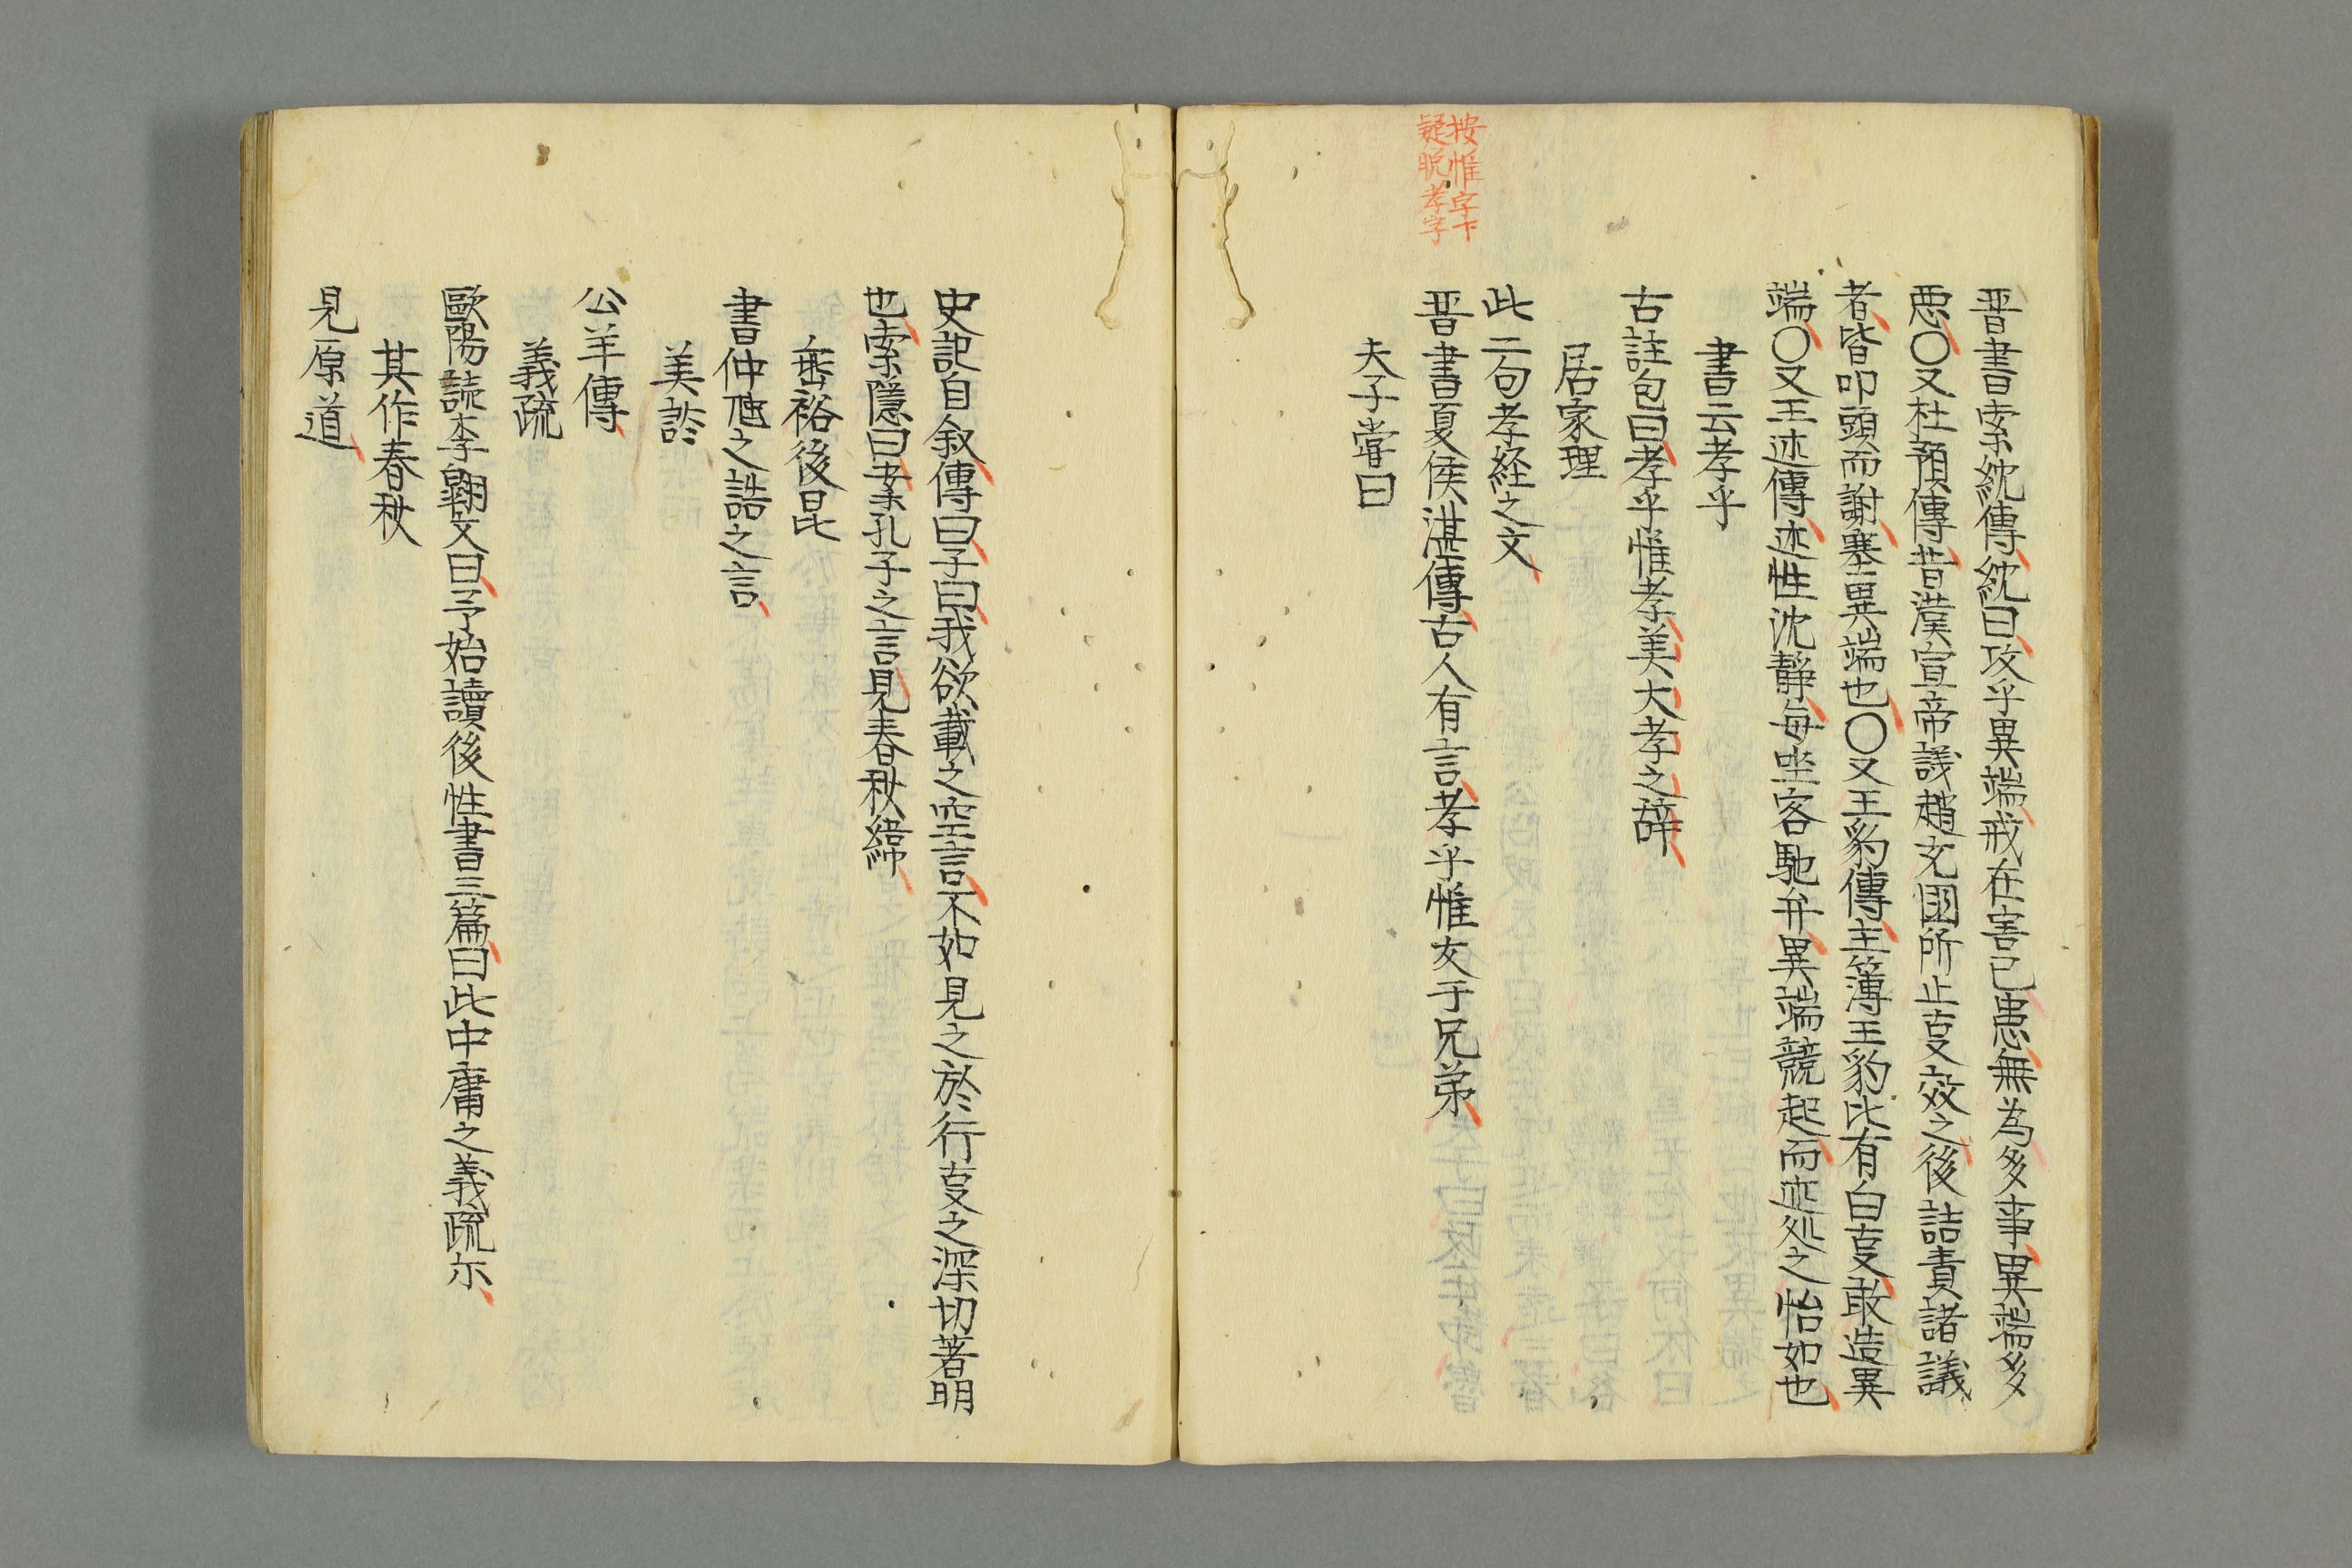 晋書索紞傳紞曰攻乎異端戒在害己𢛳無為多事異端多
悪〇又杜預傳昔漢宣帝議趙充國所上叓效之後詰責諸議
者皆叩頭而謝塞異端也〇又王豹傳主簿王豹比有白叓敢造異
端〇又王述傳述性沈靜毎坐客馳弁異端競起而述処之怡如也
書云孝乎
古註包曰孝乎惟孝美大孝之辞
居家理
此二句孝経之文
按惟字下
疑脱孝字
晋書夏侯湛傳古人有言孝乎惟友于兄弟
夫子嘗曰
史記自叙傳曰子曰我欲載之空言不如見之於行叓之深切著明
也索隱曰案孔子之言見春秋緯
垂裕後昆
書仲虺之誥之言
美諡
公羊傳
義疏
歐陽読李翺文曰予始讀復性書三篇曰此中庸之義疏尓
其作春秋
見原道